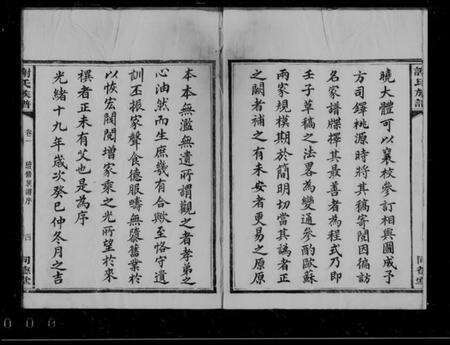 曉大體可以襄校參訂相與圖成予
方司鐸桃源時將其稿寄閱因徧訪
名家譜牒擇其最善者為程式乃即
壬子草稿之法畧為變通參酌歐蘇
兩家規模期於簡明切當其譌者正
之闕者補之有未安者更易之原原
本本無濫無遺所謂觀之者孝弟之
心油然而生庶幾有合歟至恪守遺
訓丕振家聲食德服疇無隳舊業於
以恢宏閥閱增家乘之光所望於來
禩者正未有艾也是為序
光緒十九年歲次癸巳仲冬月之吉
謝氏族譜
卷一
續修族譜序
四